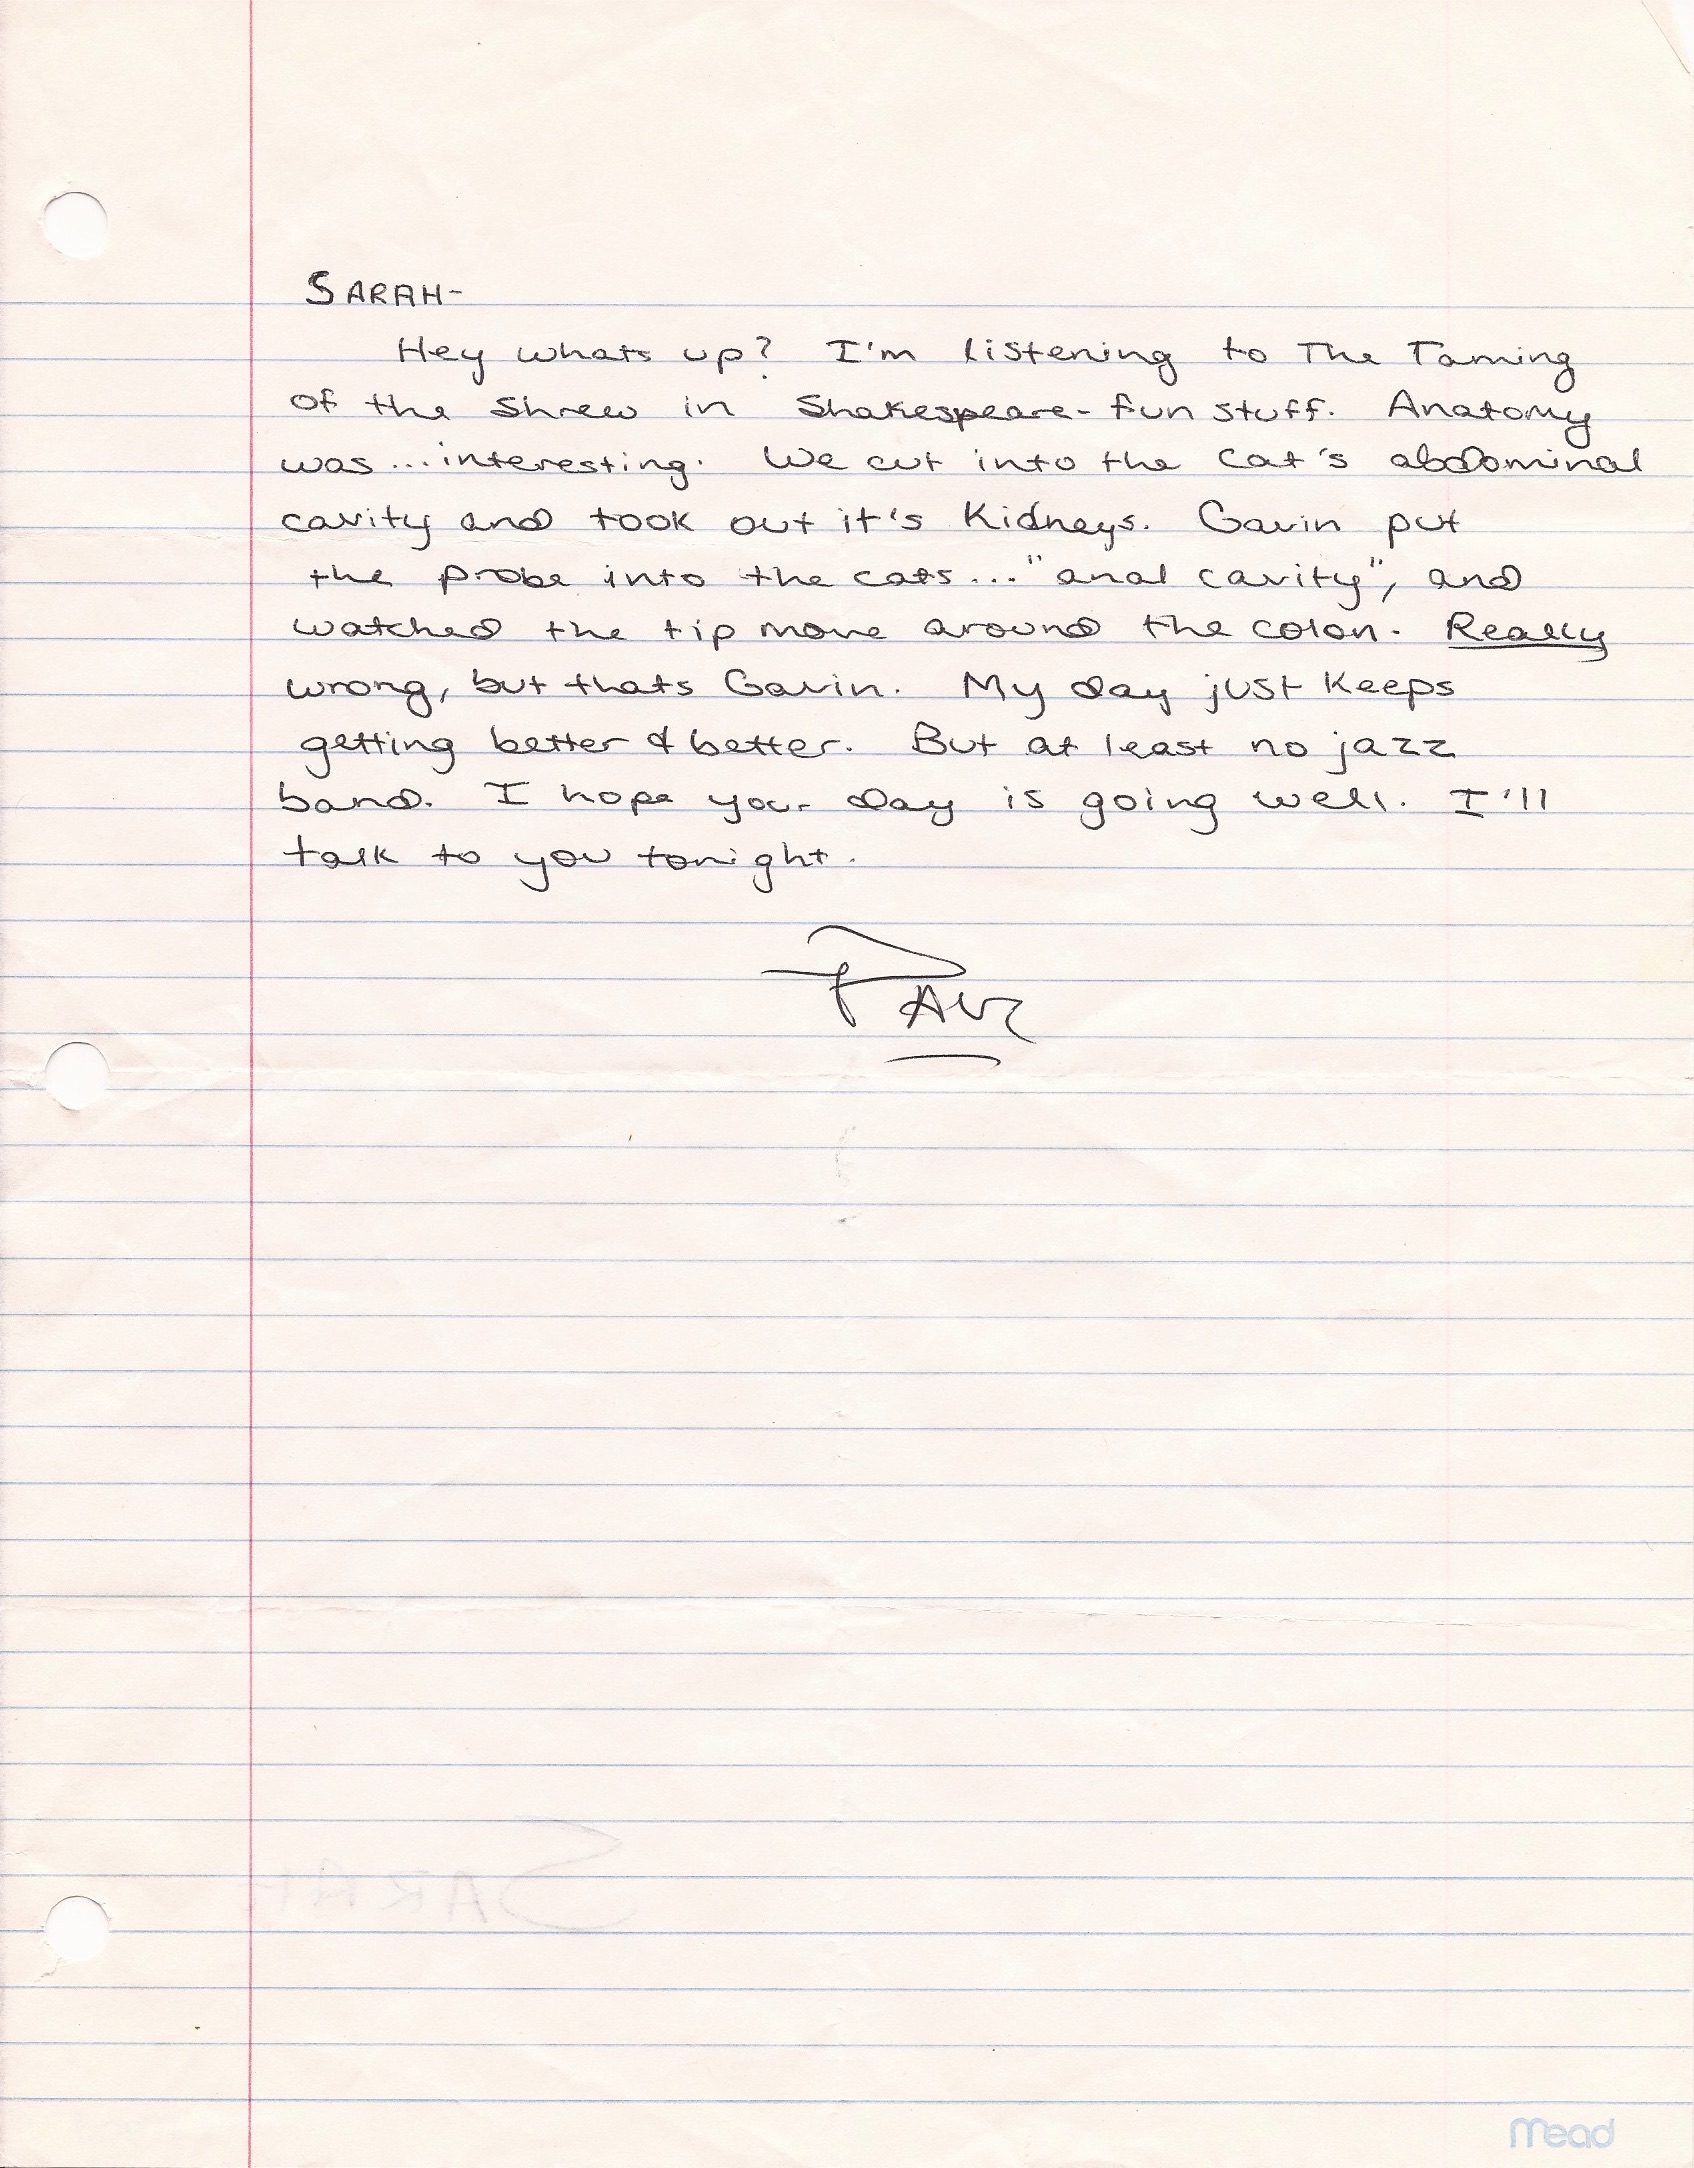 SARAH-
Hey whats up? I'm listening to The Taming
of the Shrew in Shakespeare - fun stuff. Anatomy
was...interesting. We cut into the cat's abdominal
cavity and took out it's kidneys. Gavin put
the probe into the cats... "anal cavity", and
watched the tip move around the colon. Really
wrong, but thats Gavin. My day just keeps
getting better & better. But at least no jazz
band. I hope your day is going well. I'll
talk to you tonight.
PAUL
SARAH
Mead